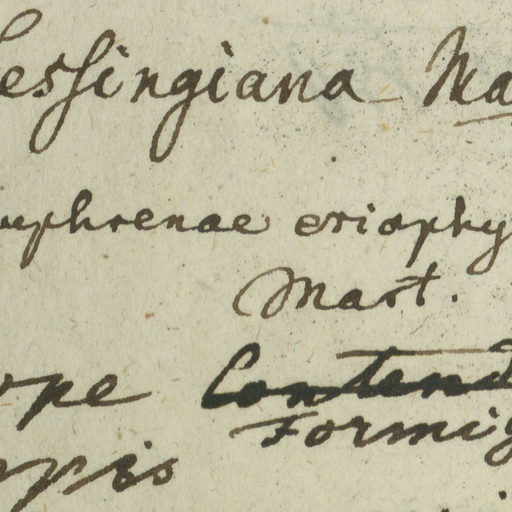 Lessingiana Ma
mphrenae eriophy
Mart.
ope Contend
Formig
ppis